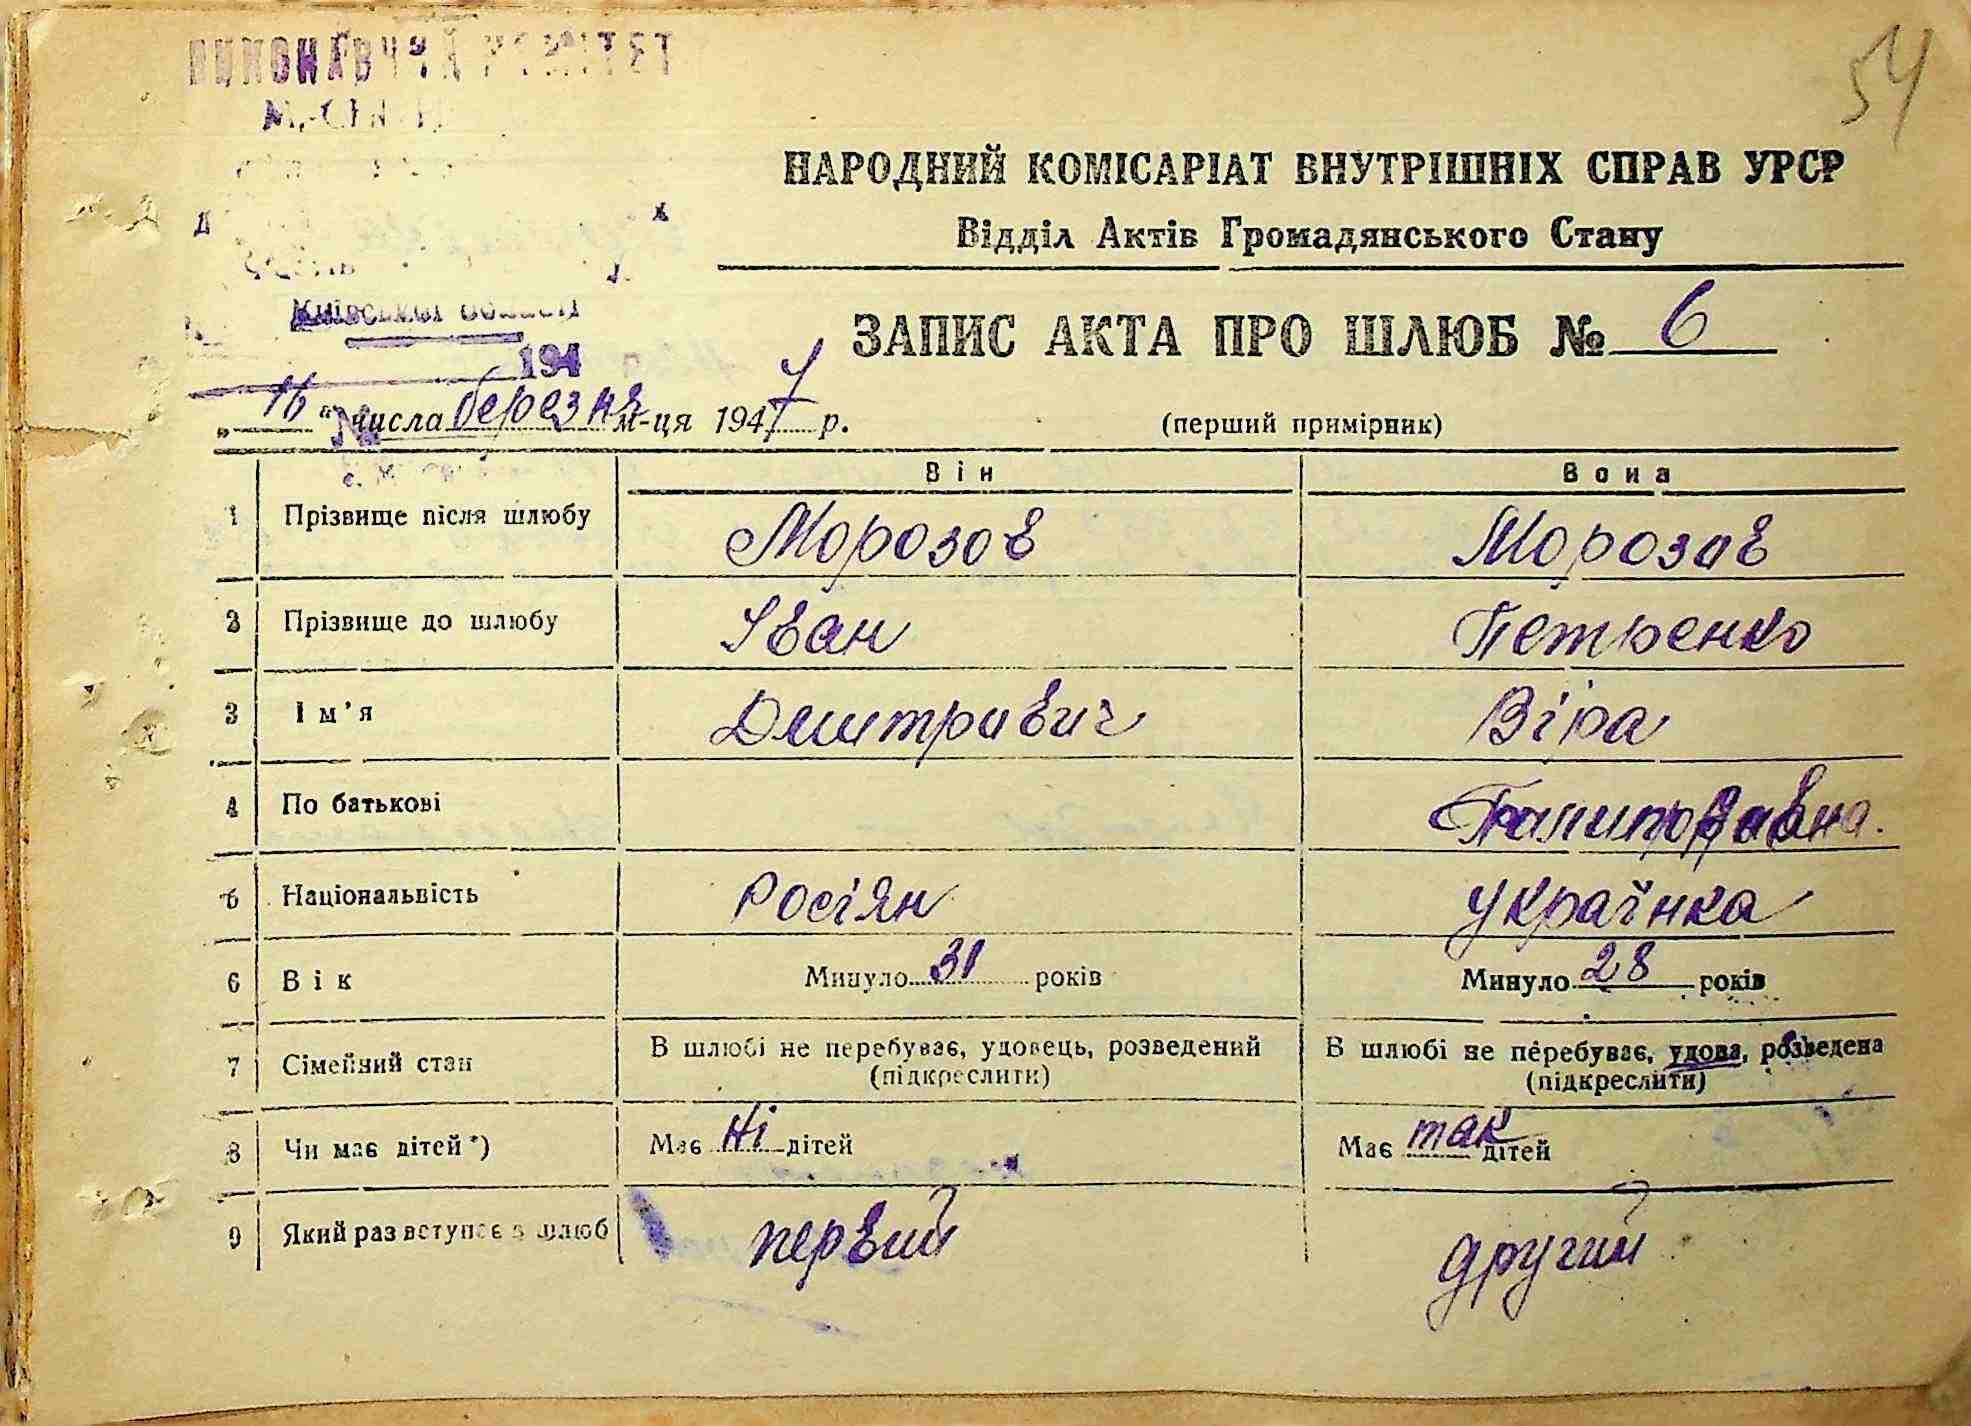 ВИКОНАВЧИЙ КОМІТЕТ
54
НАРОДНИЙ КОМІСАРІАТ ВНУТРІШНІХ СПРАВ УРСР
Відділ Актів Громадянського Стану
Київської області
ЗАПИС АКТА ПРО ШЛЮБ № 6
194
„ 16 " числа березня м-ця 1947 р.
№
(перший примірник)
Він Вона
1 Прізвище після шлюбу Морозов Морозов
2 Прізвище до шлюбу Іван Петренко
3 Ім'я Дмитрович Віра
4 По батькові
5 Національність Росіян українка
6 Вік Минуло 31 років Минуло 28 років
7 Сімейний стан В шлюбі не перебуває, удовець, розведений В шлюбі не перебуває, удова, розведена
(підкреслити) (підкреслити)
8 Чи має дітей*) Має Ні дітей Має так дітей
9 Який раз вступає в шлюб первий другий